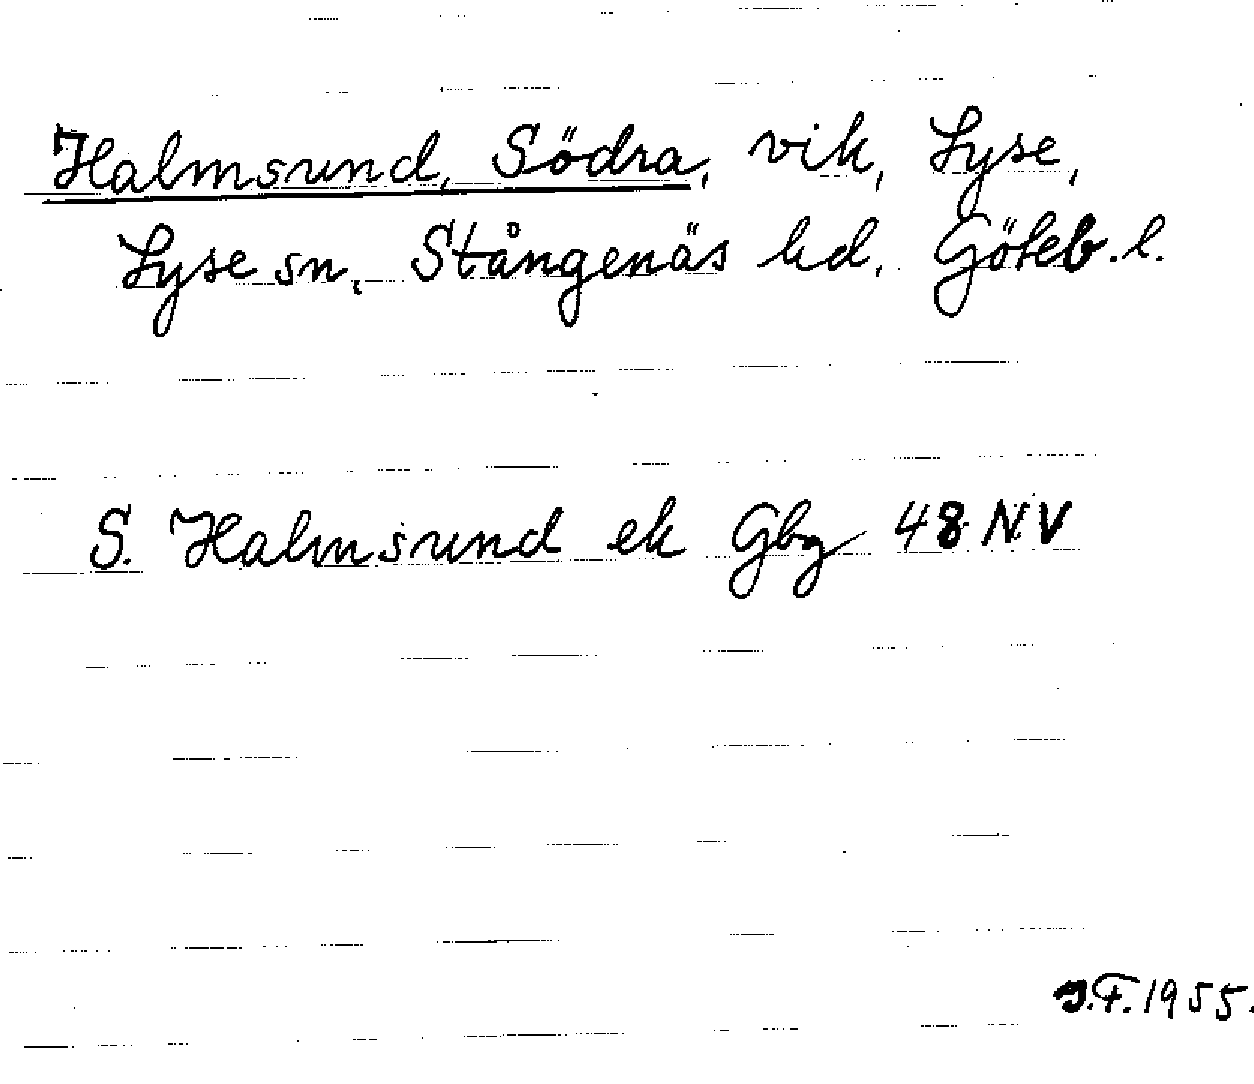 Halmsund, Södra, vik, Lyse,
Lyse sn, Stångenäs hd, Göteb. l.
S. Halmsund ek Gbg 48 NV
J.F. 1955.